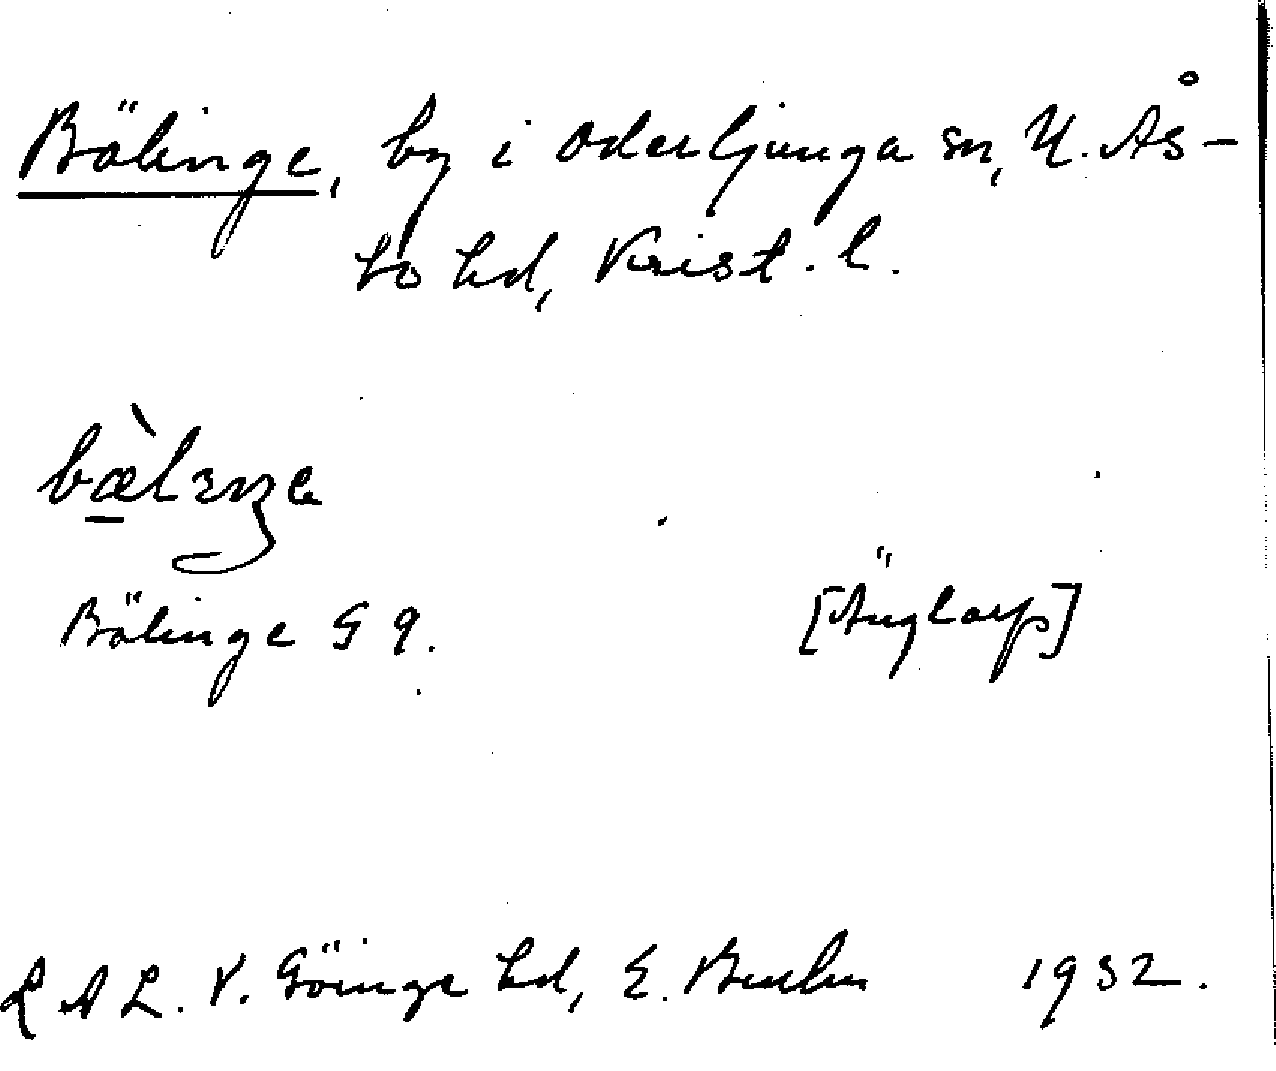 Bälinge, by i Oderljunga sn, N. Ås-
bo hd, Krist. l.
bæ̀lɪŋe
Bälinge G 9.
[Änglarp]
L A L. V. Göinge hd, E. 1932.